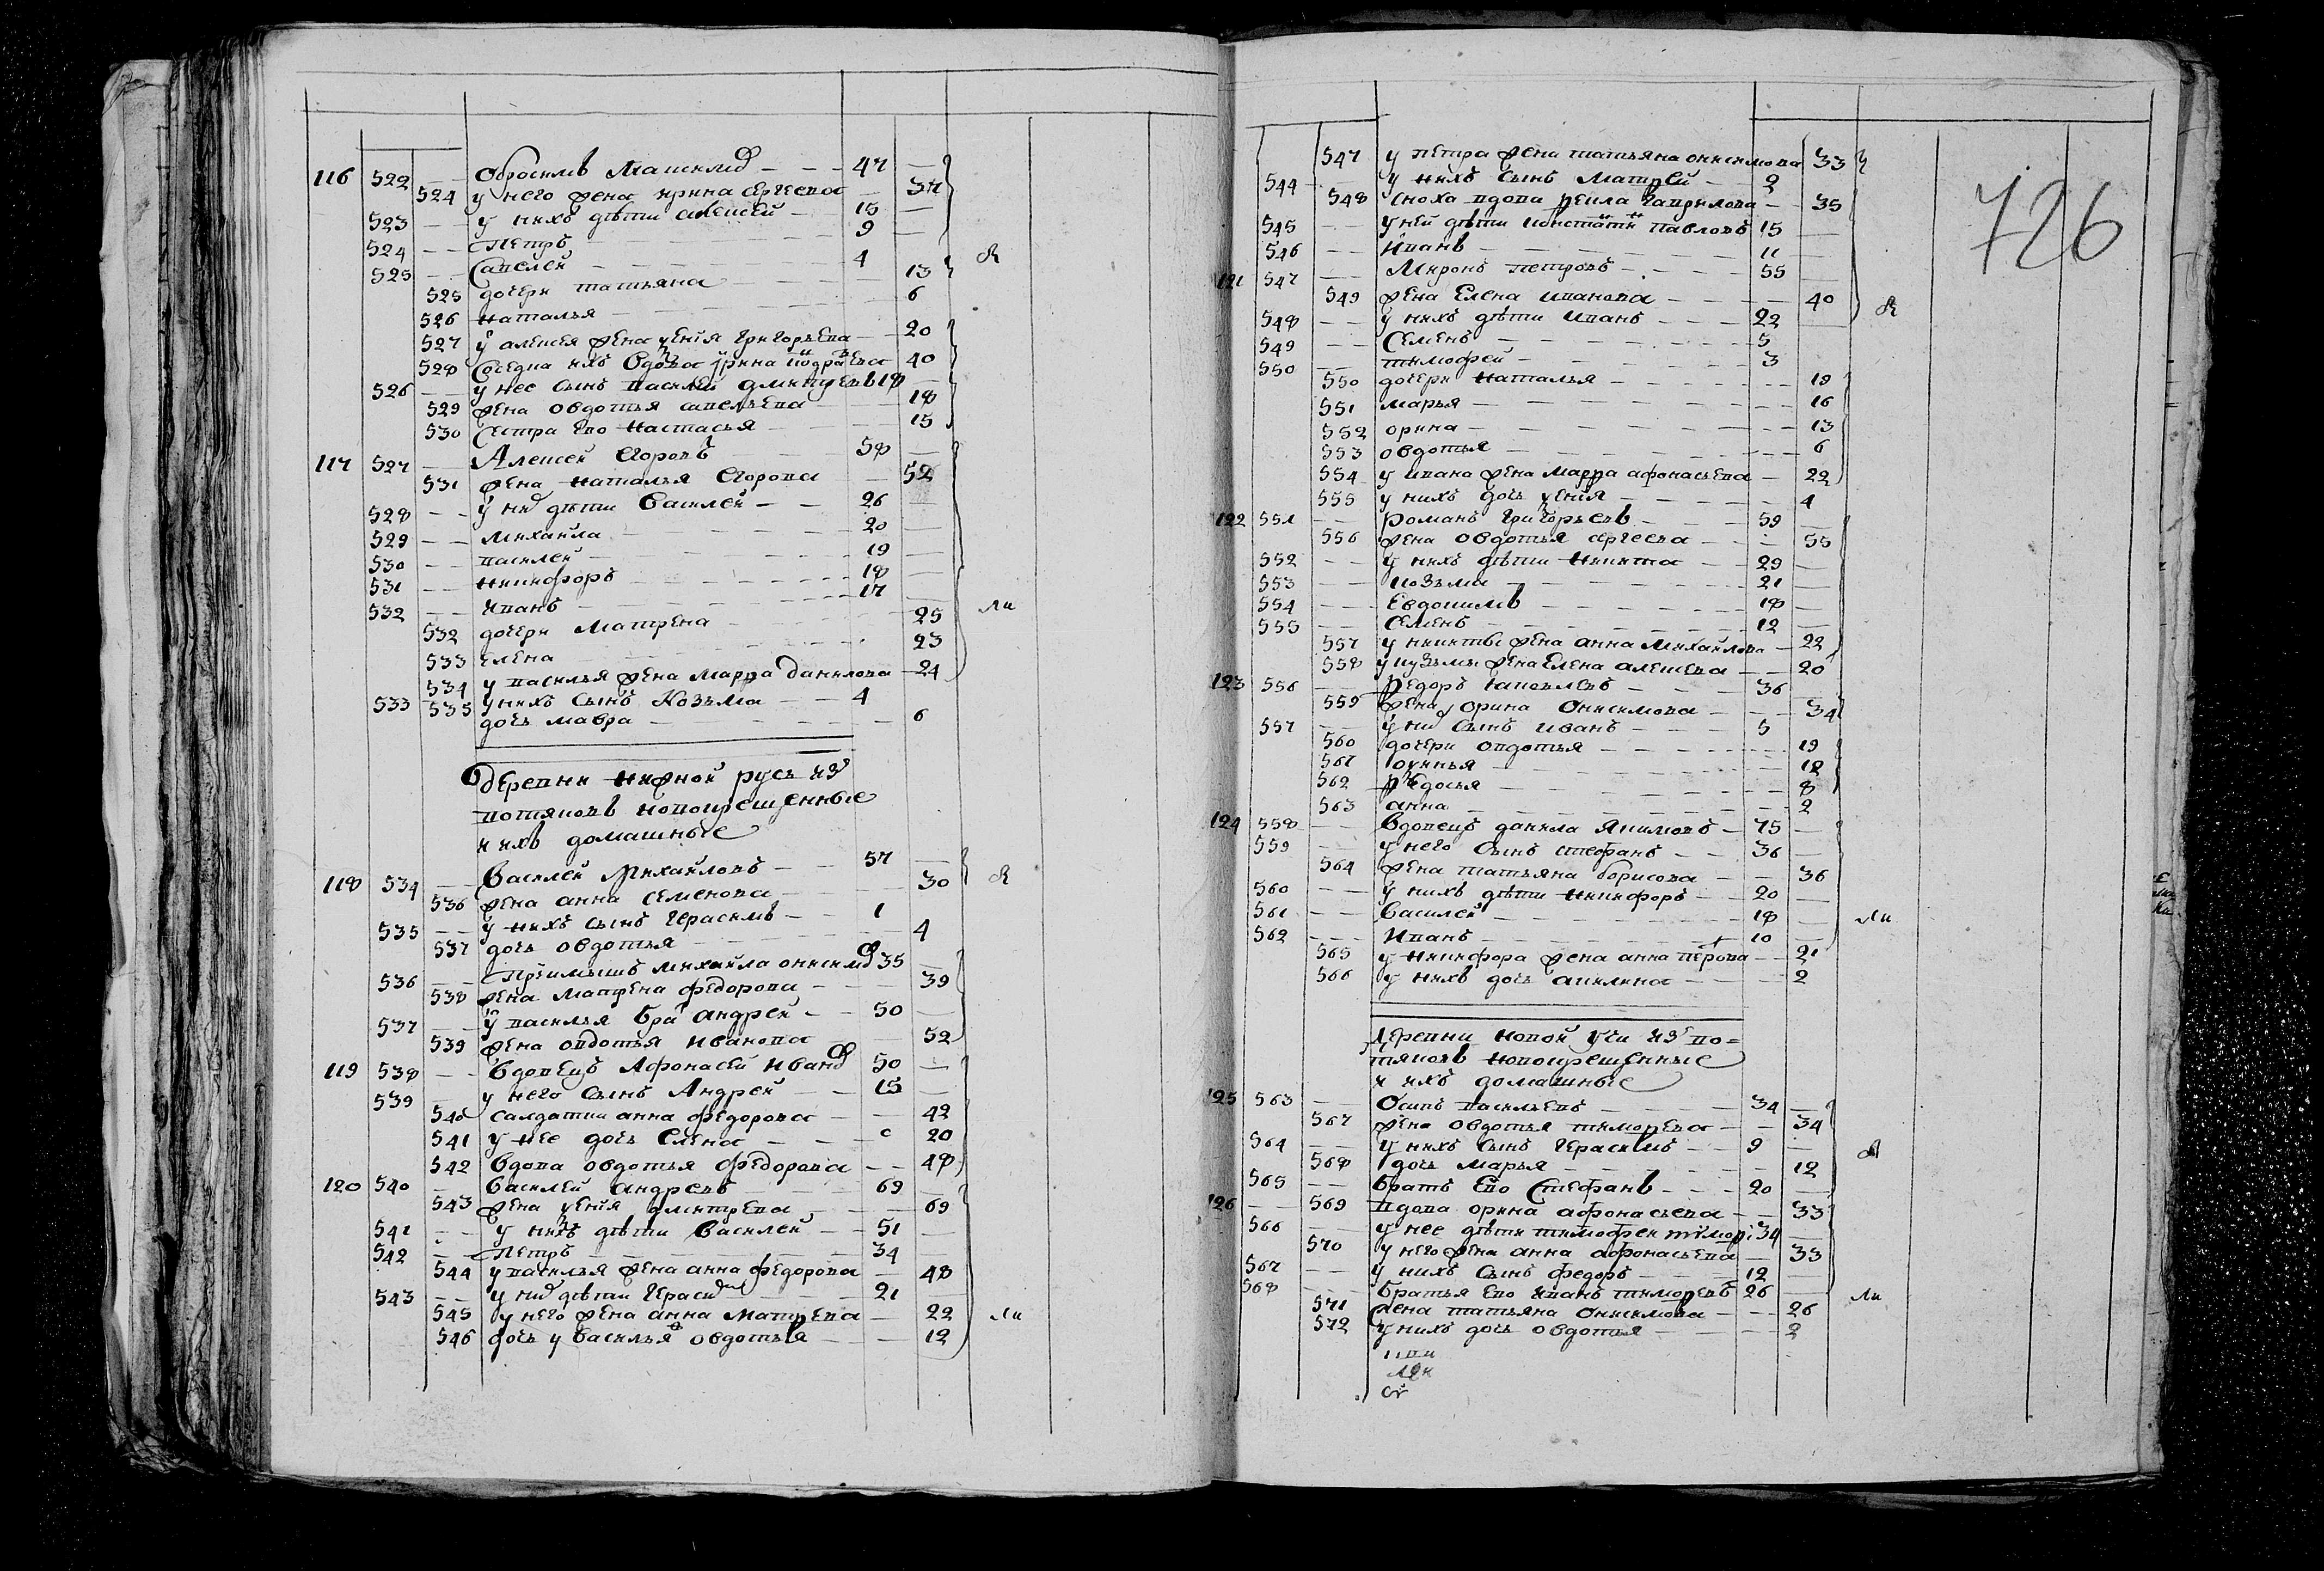 116 522 — Обросимъ Максимо — 47 —
524 у него жена ирина сергеева — 37
523 — у нихъ дѣти алексей — 15 —
524 — Петръ — 9 —
525 — Савелей — 4
525 дочери татьяна — 13
526 наталья — 6
527 у алексея жена ксенiя григорьева — 20
528 Соседка ихъ вдова 40
526 — у нее сынъ василей дмитреевъ 18 —
529 жена овдотья савельева — 18
530 Сестра ево настасья — 15
117 527 — Алексей Егоровъ 58 —
531 жена наталья Егорова — 52
528 — у ни дѣти василей — 26 —
529 — михайла — 20 —
530 — василей — 19 —
531 — никифоръ — 18 —
532 — Иванъ — 17 —
532 дочери матрена — 25
533 елена — 23
534 у василья жена марфа данилова — 24
533 535 у нихъ сынъ Козьма — 4
дочь мавра — 6
деревни нижной русь изъ
вотяковъ новокрещенные
и ихъ домашные
118 534 — Василей Михайловъ — 57 —
536 жена анна семенова — 30
535 — у нихъ сынъ герасимъ — 1
537 дочь овдотья — 4
536 — Прiимышъ михайла онисимо 35 —
538 жена матрена федорова — 39
537 — у василья бра андрей — 50 —
539 жена овдотья иванова — 52
119 538 — вдовецъ Афонасей ивано 50 —
539 у него сынъ Андрей — 15 —
540 салдатки анна федорова — 42
541 у нее дочь елена — 20
542 вдова овдотья федорова — 48
120 540 — василей андреевъ 69 —
543 жена ксенiя дмитрева — 69
541 — у нихъ дѣти василей — 51 —
542 — Петръ — 34
544 у василья жена анна федорова — 48
543 — у ни дѣти гераси — 21
545 у него жена анна матвеева — 22
546 дочь у василья овдотья — 12
547 у петра жена татьяна онисимова 33
544 — у нихъ сынъ матвей — 2
548 сноха вдова фекла гаврилова — 35
545 — у ней дѣти константи павловъ 15 —
546 — Иванъ — 11 —
121 547 — Миронъ петровъ — 55 —
549 жена елена иванова — 40
548 — у нихъ дѣти иванъ — 22 —
549 — Семенъ — 5
550 — тимофей — 3
550 дочери наталья — 19
551 марья — 16
552 орина — 13
553 овдотья — 6
554 у ивана жена марфа афонасьева — 22
555 у нихъ дочь ксенiя — 4
122 551 — романъ григорьевъ — 59 —
556 жена овдотья сергеева — 55
552 — у нихъ дѣти никита — 29 —
553 — козьма — 21 —
554 — Евдокимъ — 18 —
555 — семенъ — 12 —
557 у никиты жена анна михайлова — 22
558 у кузьмы жена елена алексеева — 20
123 556 — федоръ савельевъ — 36 —
559 жена орина онисимова — 34
557 — у ни сынъ иванъ — 5
560 дочери овдотья — 19
561 — 12
562 федосья — 8
563 анна — 2
124 558 — вдовецъ данила Якимовъ — 75 —
559 — у него сынъ стефанъ — 36 —
564 жена татьяна борисова — 36
560 — у нихъ дѣти никифоръ — 20 —
561 — василей — 18 —
562 — Иванъ — 10 —
565 у никифора жена анна петрова — 21
566 у нихъ дочь акилина — 2
деревни новой учи изъ во=
тяковъ новокрещенные
и ихъ домашные
125 563 — Осипъ васильевъ — 34 —
567 жена овдотья тимофеева — 34
564 — у нихъ сынъ герасимъ — 9 —
568 дочь марья — 12
565 — братъ ево Стефанъ — 20 —
126 — 569 вдова орина афонасьева — 33
566 — у нее дѣти тимофей тимоф 34 —
570 у него жена анна афонасьева — 33
567 — у нихъ сынъ федоръ — 12 —
568 — братья ево иванъ тимофеевъ 26 —
571 жена татьяна онисимова — 26
572 у нихъ дочь овдотья — 2
726